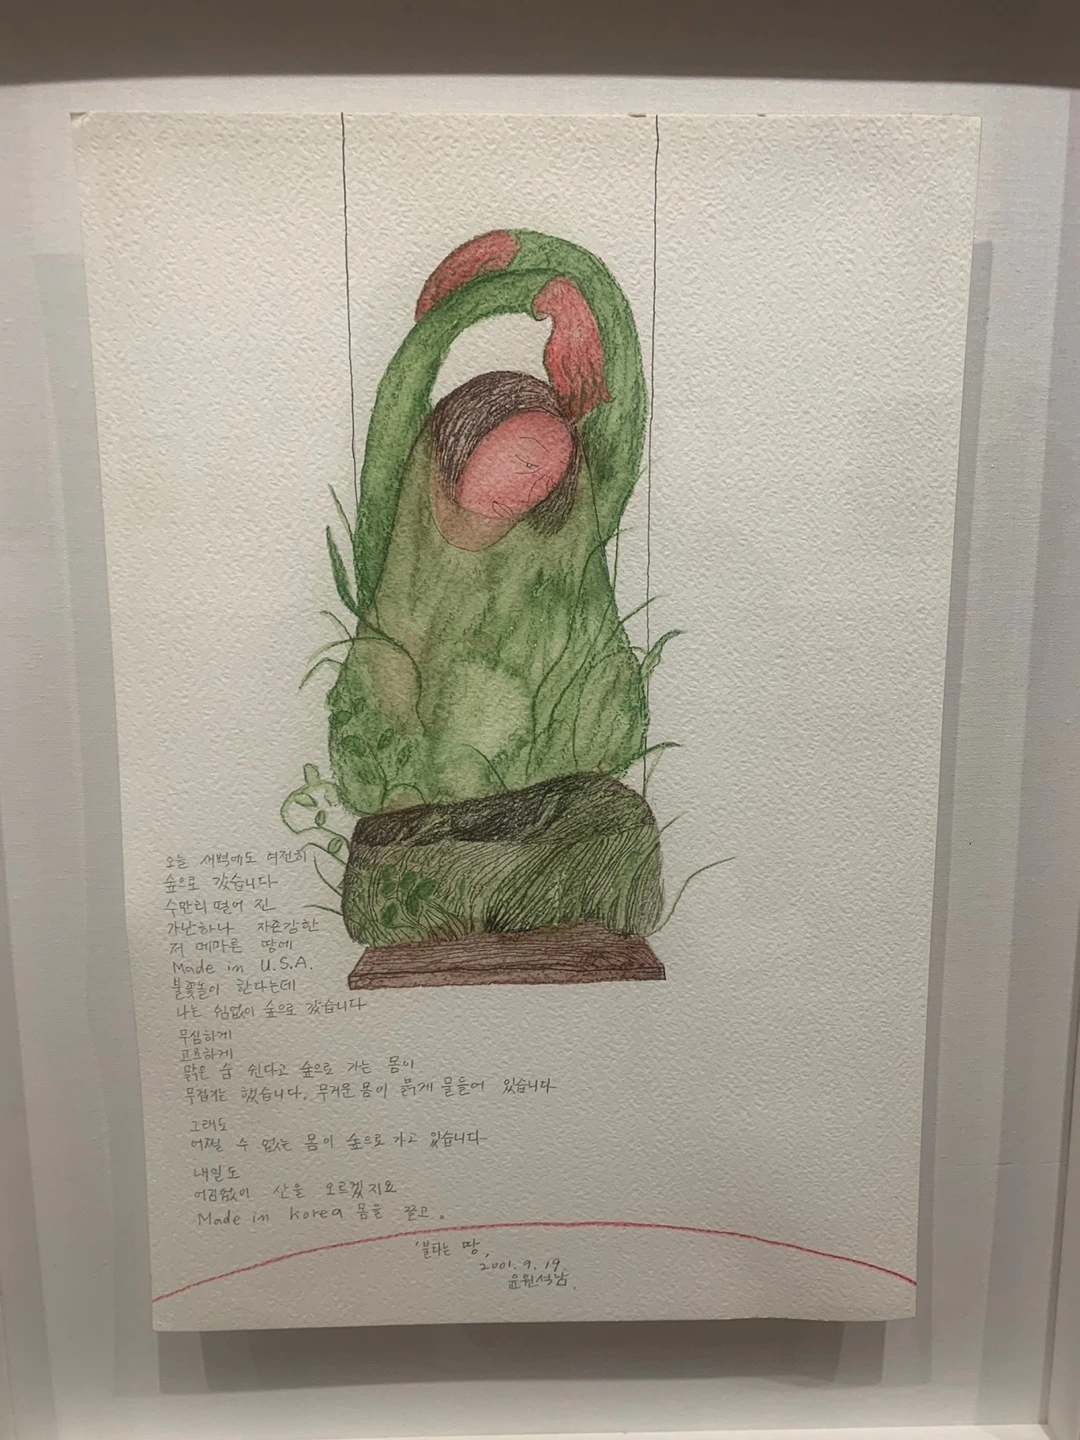 오늘 새벽에도 여전히
숲으로 갔습니다
수만리 떨어 진
가난하나 자존감한
저 메마른 땅에
Made in U.S.A.
불꽃놀이 한다는데
나는 쉼없이 숲으로 갔습니다
무심하게
고요하게
맑은 숨 쉰다고 숲으로 가는 몸이
무겁기는 했습니다. 무거운 몸이 붉게 물들어 있습니다
그래도
어쩔 수 없는 몸이 숲으로 가고 있습니다
내일도
어김없이 산을 오르겠지요
Made in Korea 몸을 끌고.
'불타는 땅,
2001. 9. 19.
윤석남.